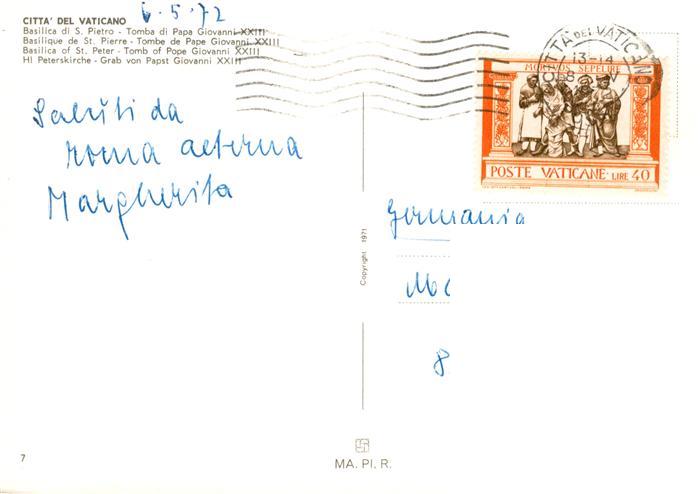 6.5.72
CITTA' DEL VATICANO
Basilica di S. Pietro - Tomba di Papa Giovanni XXIII
Basilique de St. Pierre - Tombe de Pape Giovanni XXIII
Basilica of St. Peter - Tomb of Pope Giovanni XXIII
Hl Peterskirche - Grab von Papst Giovanni XXIII
CITTÀ DEL VATICANO
13-14
MORTVOS SEPELIRE
POSTE VATICANE · LIRE 40
Saluti da
roma aeterna
Margherita
Germania
8
Copyright 1971
7
MA. PI. R.